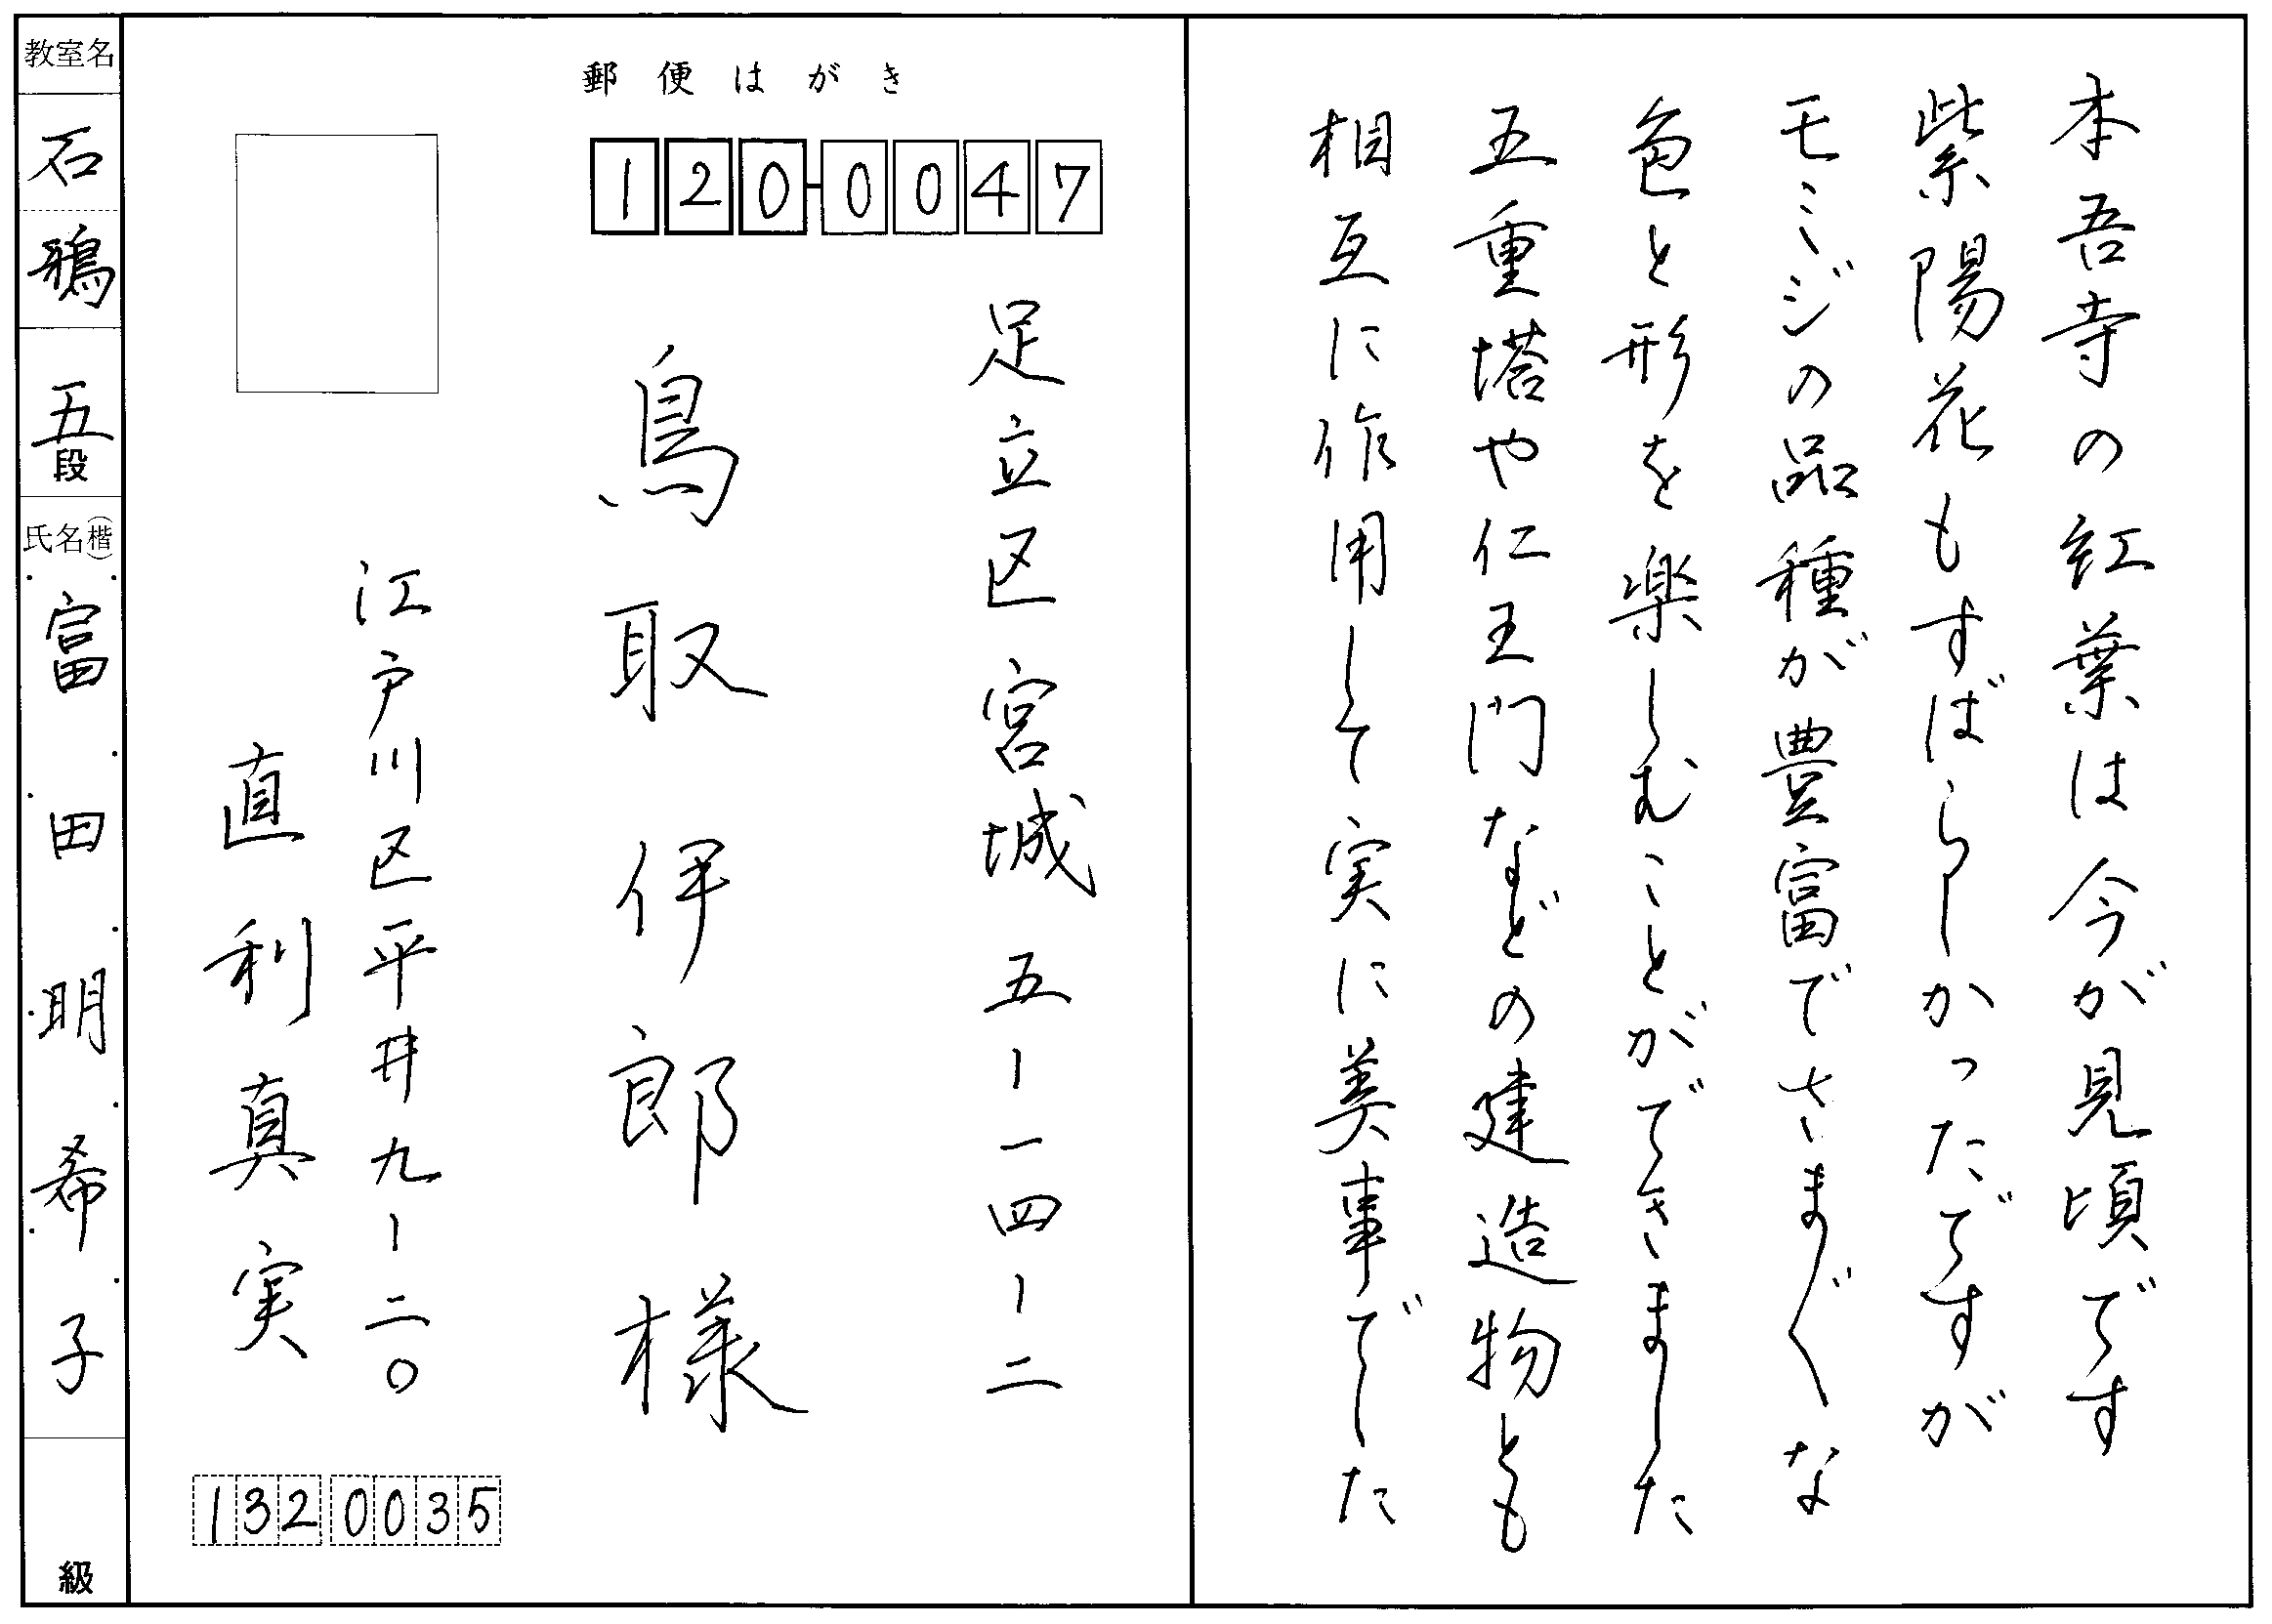 本吾寺の紅葉は今が見頃です
紫陽花もすばらしかったですが
モミジの品種が豊富でさまぐな
色と形を楽しむことができました
五重塔や仁王門などの建造物とも
相互に作用して実に美事でした
郵便はがき
120-0047
足立区宮城 五ー一四ー二
鳥取伊郎様
江戸川区平井九ー二〇
直利真実
132 0035
教室名
石鴉
五段
氏名(楷)
富田明希子
級